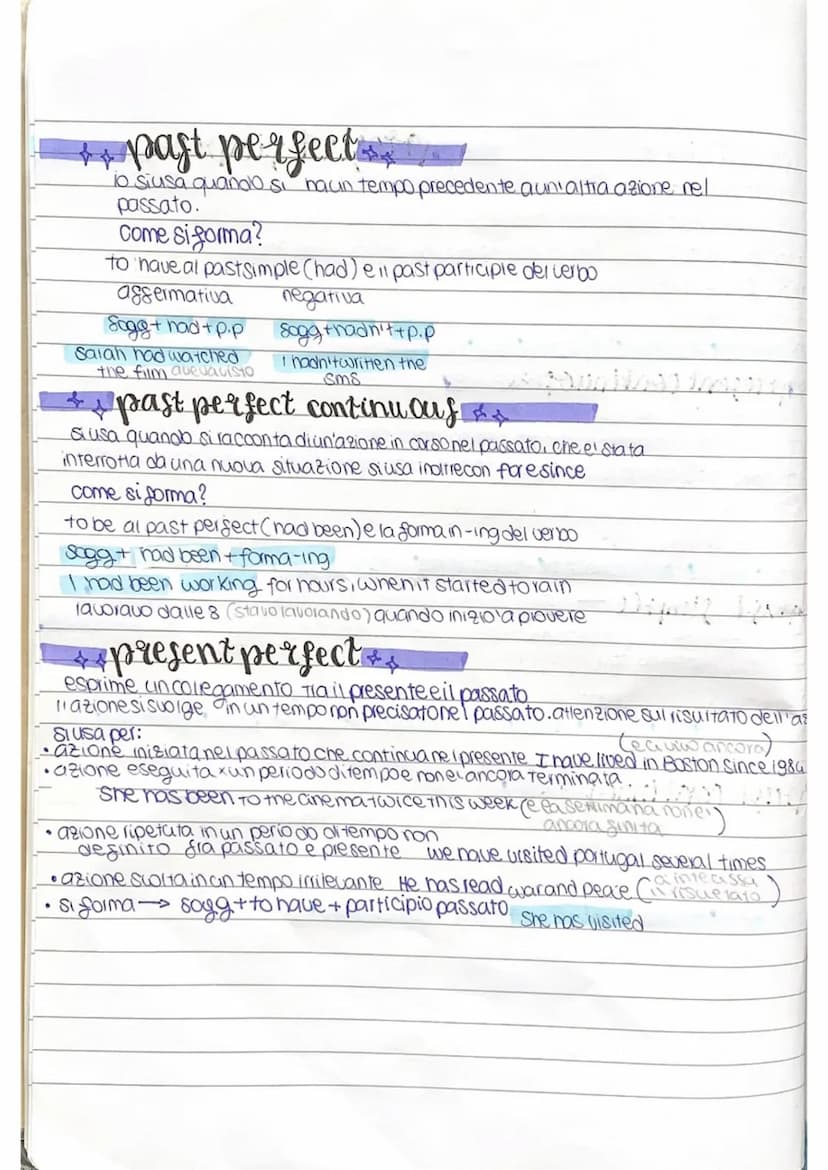 past perfect
lo si usa quando si ha un tempo precedente a un'altra azione nel
passato.
come si forma?
to have al past simple (had) e il past participle del verbo
affermativa negativa
sogg + had + p.p sogg + hadn't + p.p
Sarah had watched I hadn't written the
the film aveva visto sms
past perfect continuous
si usa quando si racconta di un'azione in corso nel passato, che e' stata
interrotta da una nuova situazione si usa inoltre con for e since
come si forma?
to be al past perfect (had been) e la forma in -ing del verbo
sogg + had been + forma -ing
I had been working for hours, when it started to rain
lavoravo dalle 8 (stavo lavorando) quando inizio' a piovere
present perfect
esprime un colegamento tra il presente e il passato
l'azione si svolge in un tempo non precisato nel passato. attenzione sul risultato dell'az
si usa per: (e ci vivo ancora)
• azione iniziata nel passato che continua nel presente I have lived in Boston since 1984
• azione eseguita x un periodo di tempo e non e' ancora terminata
She has been to the cinema twice this week (e la settimana non e'
ancora finita)
• azione ripetuta in un periodo di tempo non
definito fra passato e presente we have visited portugal several times
• azione svolta in un tempo irrilevante He has read war and peace (a interessa
il risultato)
• si forma → sogg + to have + participio passato She has visited